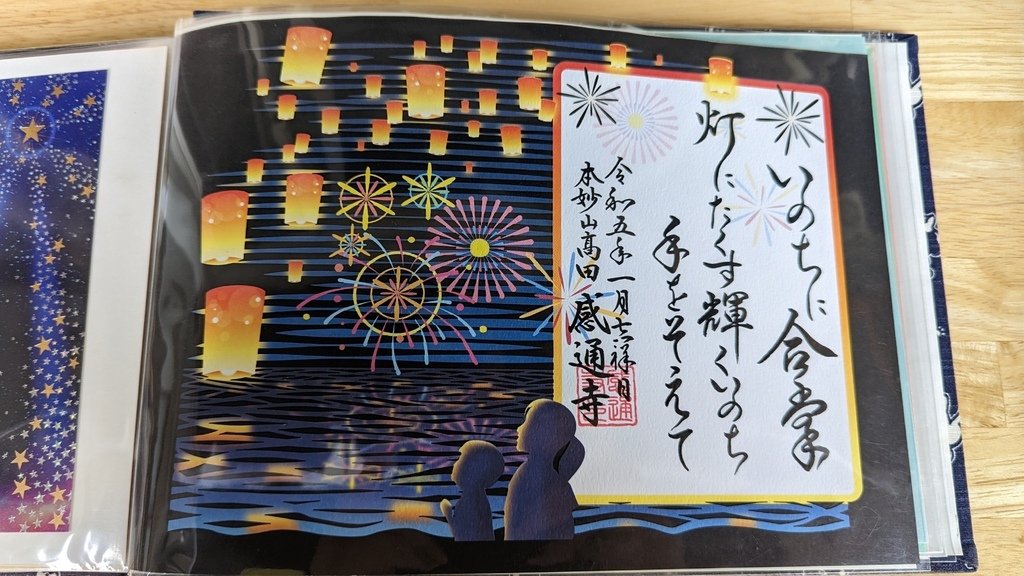 いのちに合掌
灯にたくす輝くいのち
手をそえて
令和五年一月吉祥日
本妙山髙田感通寺